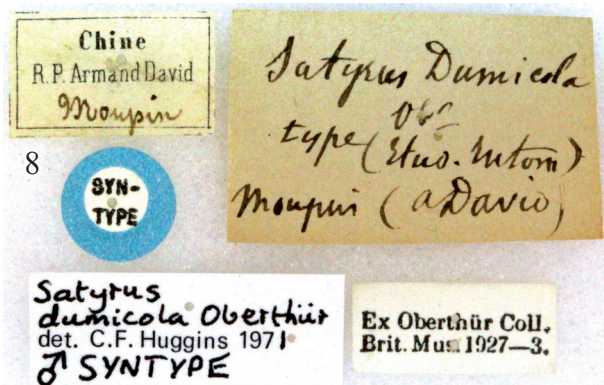 Chine
R.P. Armand David
Moupin
Satyrus Dumicola
Obr
type (Etud. Entom)
Moupin (a David)
8
SYN-
TYPE
Satyrus
dumicola Oberthür
det. C.F. Huggins 1971
♂ SYNTYPE
Ex Oberthür Coll.
Brit. Mus. 1927—3.